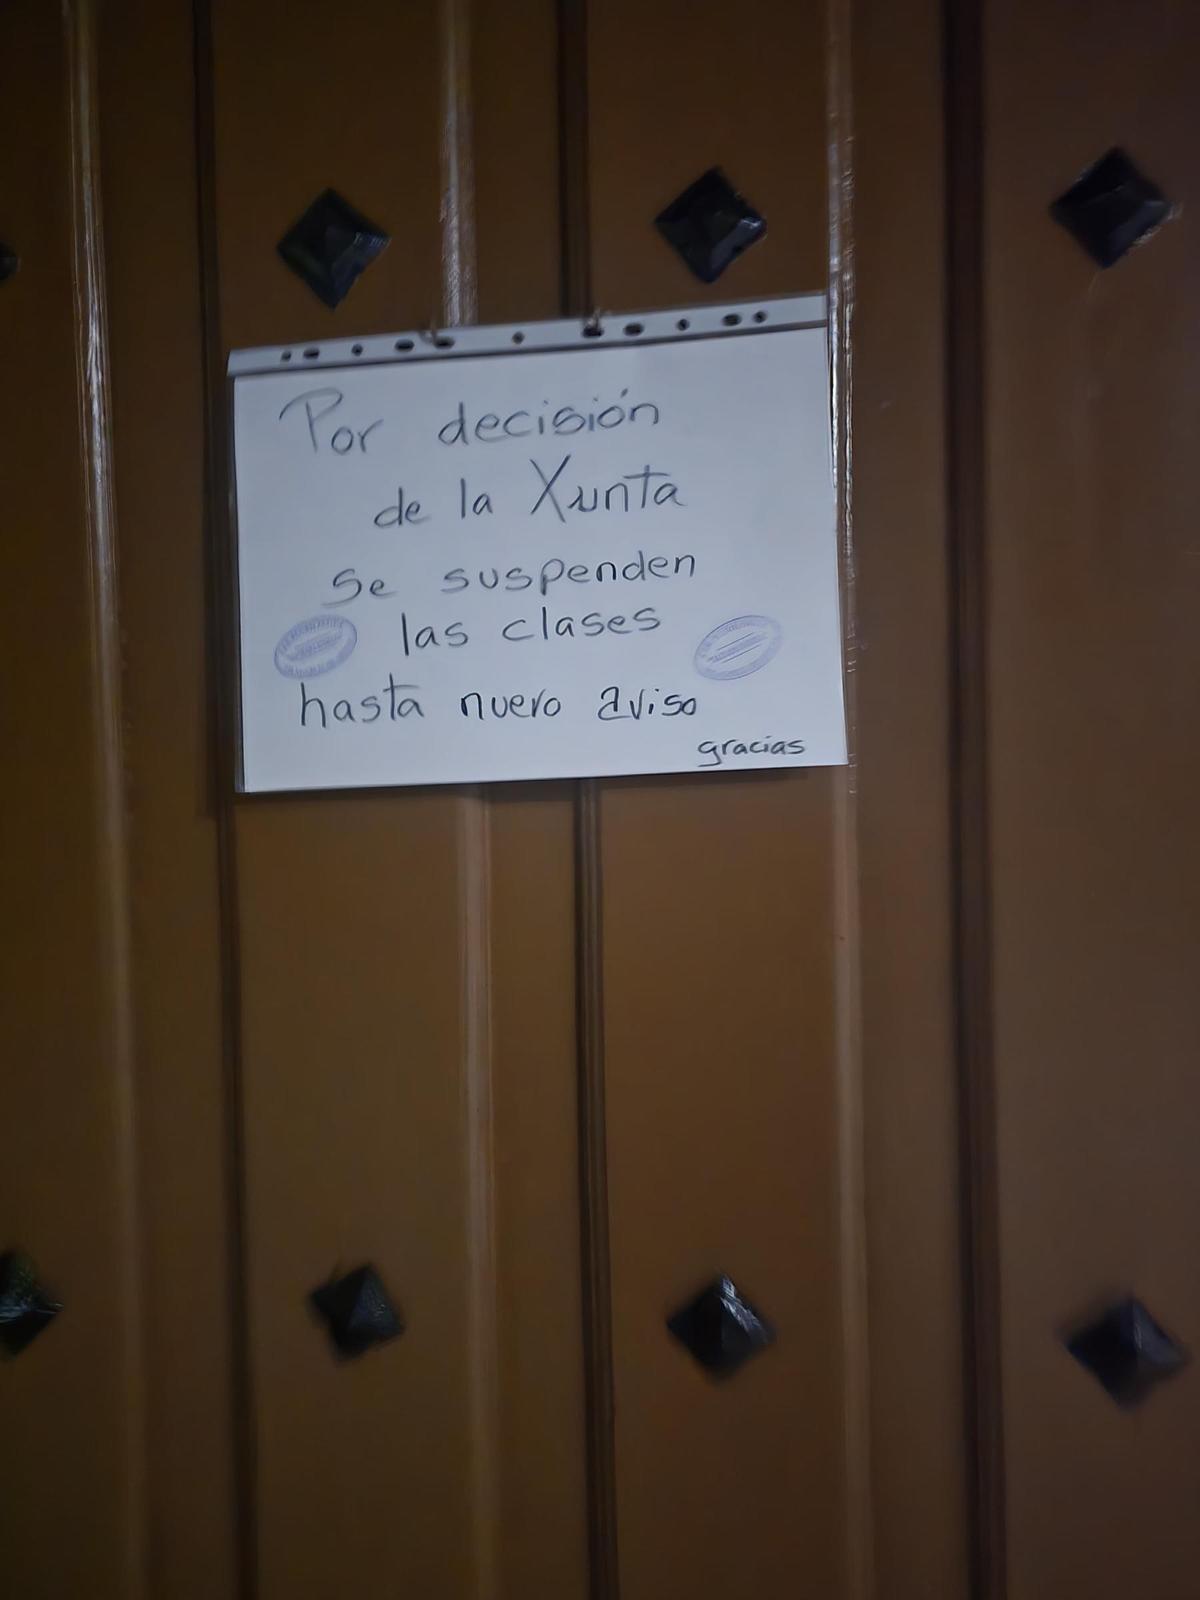 Por decisión
de la Xunta
se suspenden
las clases
hasta nuevo aviso
gracias